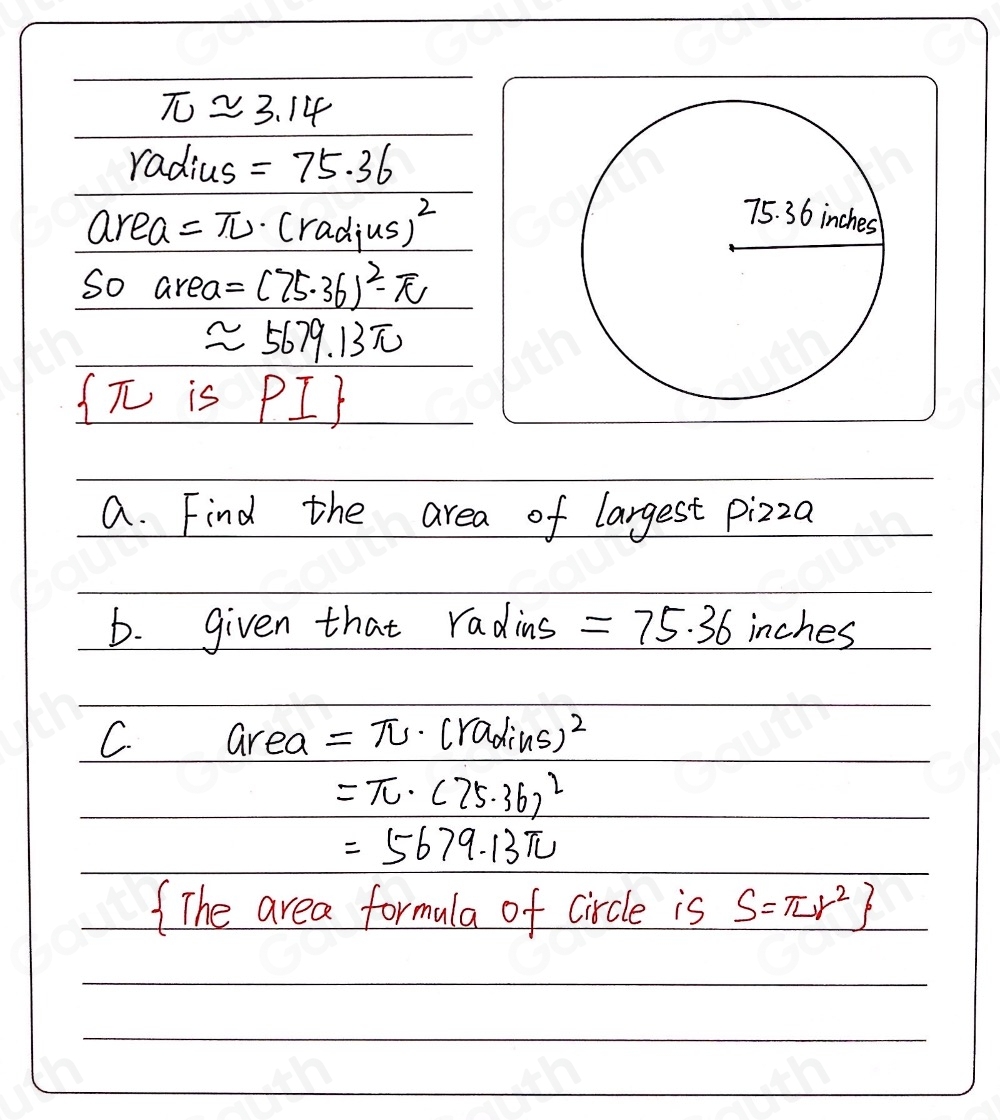 π ≈ 3.14
radius = 75.36
area = π · (radius)²
So area = (75.36)² · π
≈ 5679.13π
{π is PI}
75.36 inches
a. Find the area of largest pizza
b. given that radius = 75.36 inches
C. area = π · (radius)²
= π · (75.36)²
= 5679.13π
{The area formula of circle is S=πr²}
Gauth